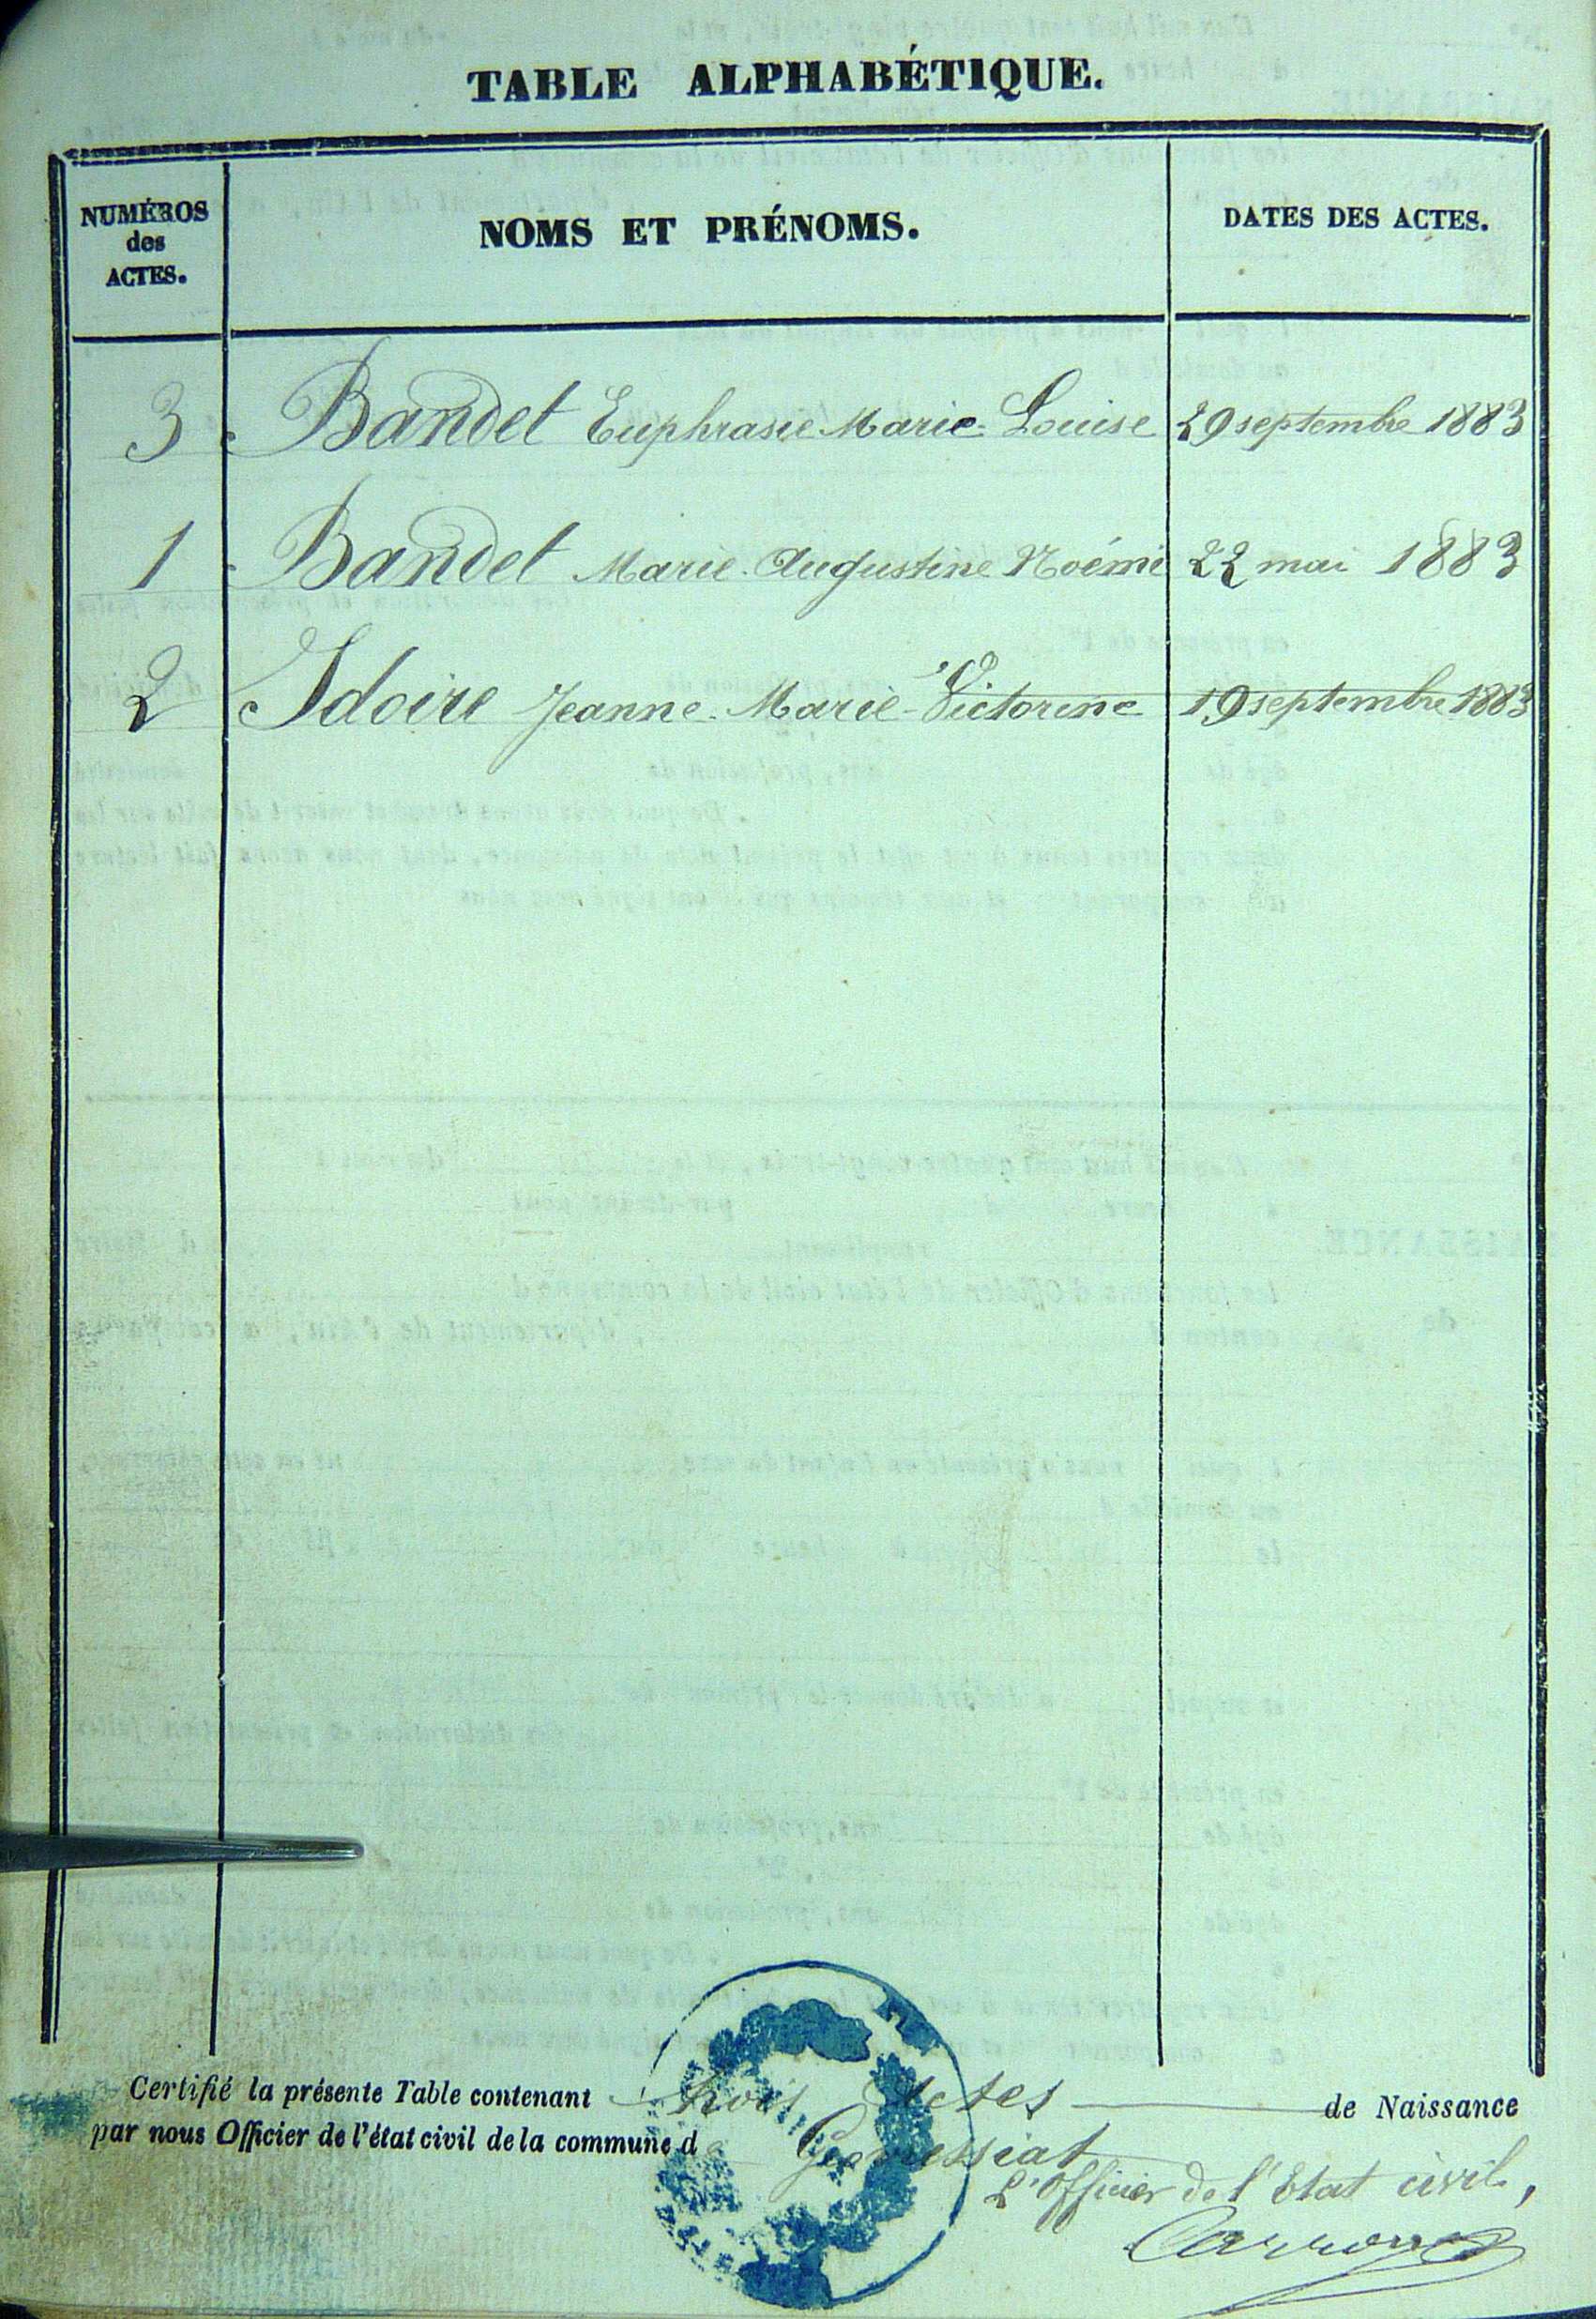 TABLE ALPHABÉTIQUE.
NUMÉROS
des
ACTES.
NOMS ET PRÉNOMS.
DATES DES ACTES.
3 Bandet Euphrasie Marie-Louise 29 septembre 1883
1 Bandet Marie-Augustine Noémi 22 mai 1883
2 Idoire Jeanne-Marie-Victorine 19 septembre 1883
Certifié la présente Table contenant trois actes de Naissance
par nous Officier de l'état civil de la commune d
L'Officier de l'Etat civil,